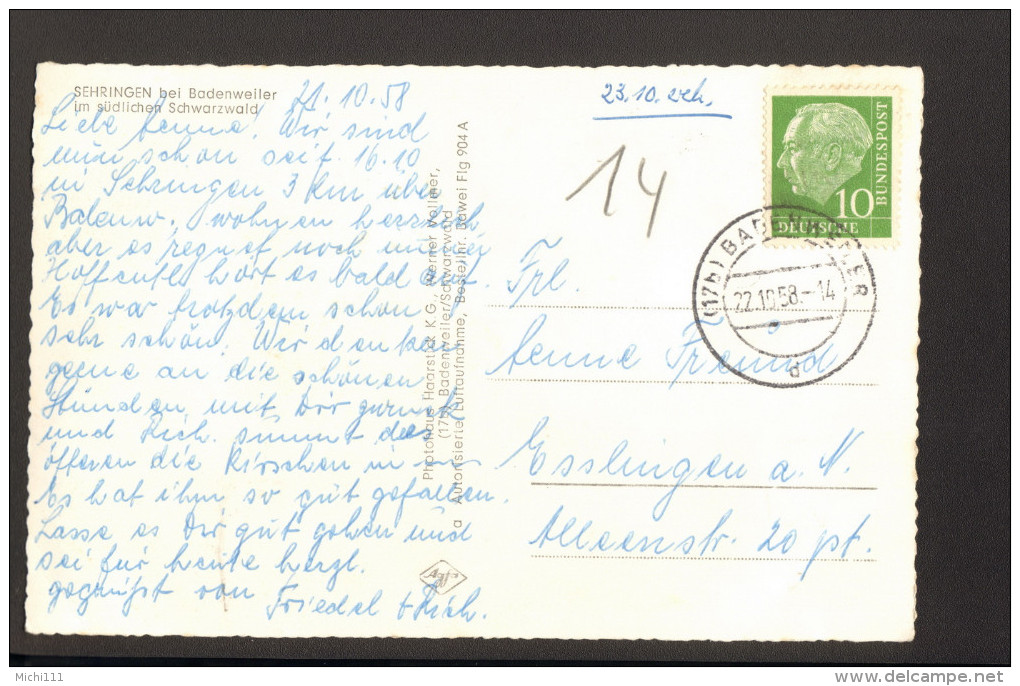 SEHRINGEN bei Badenweiler
im südlichen Schwarzwald
21.10.58
Liebe Aenne! Wir sind
nun schon seit 16.10
in Sehringen 3 Km über
Badenw. wohnen herrlich
aber es regnet noch
Hoffentl. hört es bald auf.
Es war trotzdem schon
sehr schön. Wir denken
gerne an die schönen
Stunden mit Dir zurück
und Rich. summt des
öfteren die Kirschen in
Es hat ihm so gut gefallen.
Lasse es Dir gut gehen und
sei für heute herzl.
gegrüßt von
Friedel & Rich.
Photohaus Haarstick K.G., Werner Vollmer,
(17b) Badenweiler/Schwarzwald
Autorisierte Luftaufnahme, Bestellnr. Bawei Flg 904 A
Agfa
23.10.
14
DEUTSCHE
BUNDESPOST
10
(17b) BADENWEILER
22.10.58.-14
d
Frl.
Aenne Freund
Esslingen a. N.
Alleenstr. 20 pt.
Michi111